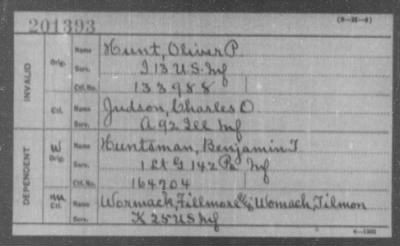 201393
(3-35-2)
INVALID
Orig.
Name Hunt, Oliver P.
Serv. I 13 U.S. Inf
Ctf. No. 133988
Ctf.
Name Judson, Charles O.
Serv. A 92 Ill Inf
DEPENDENT
W
Orig.
Name Huntsman, Benjamin F
Serv. 1 Lt G 142 Pa Inf
Ctf. No. 164204
Ctf.
Name Wormack, Fillmore Womack, Tilmon
Serv. K 25 US Inf